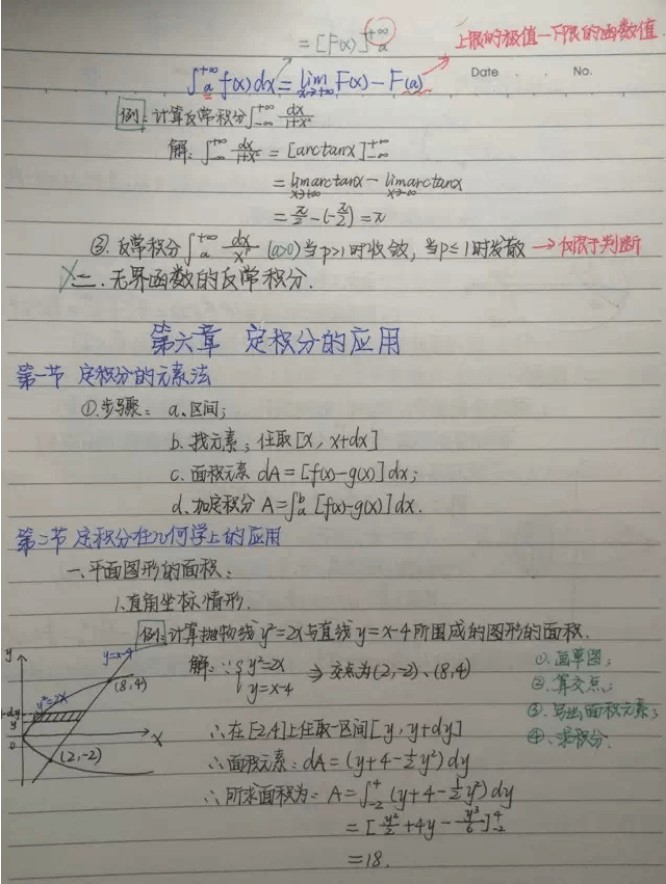 = [F(x)]_a^{+∞}
上限的极值—下限的函数值.
∫_a^{+∞} f(x)dx = lim_{x→+∞} F(x) - F(a)
Date No.
例: 计算反常积分∫_{-∞}^{+∞} dx/(1+x²)
解: ∫_{-∞}^{+∞} dx/(1+x²) = [arctanx]_{-∞}^{+∞}
= lim_{x→+∞} arctanx - lim_{x→-∞} arctanx
= π/2 - (-π/2) = π
③. 反常积分∫_a^{+∞} dx/x^p (a>0) 当p>1时收敛, 当p≤1时发散 → 仅限于判断
X 二. 无界函数的反常积分.
第六章 定积分的应用
第一节 定积分的元素法
①.步骤: a.区间;
b. 找元素; 任取[x, x+dx]
c. 面积元素 dA = [f(x)-g(x)]dx;
d. 加定积分 A=∫_a^b [f(x)-g(x)]dx.
第二节 定积分在几何学上的应用
一.平面图形的面积:
1.直角坐标情形.
例: 计算抛物线y²=2x与直线y=x-4所围成的图形的面积.
解: ∵ { y²=2x ⇒ 交点为(2,-2)、(8,4)
y=x-4
①. 画草图;
②. 算交点;
③. 写出面积元素;
④. 求积分.
y
y=x-4
(8,4)
y²=2x
y+dy
y
0
x
(2,-2)
∴在[-2,4]上任取一区间[y, y+dy]
∴面积元素: dA = (y+4-½y²)dy
∴所求面积为: A = ∫_{-2}^4 (y+4-½y²)dy
= [y²/2 + 4y - y³/6]_{-2}^4
= 18.